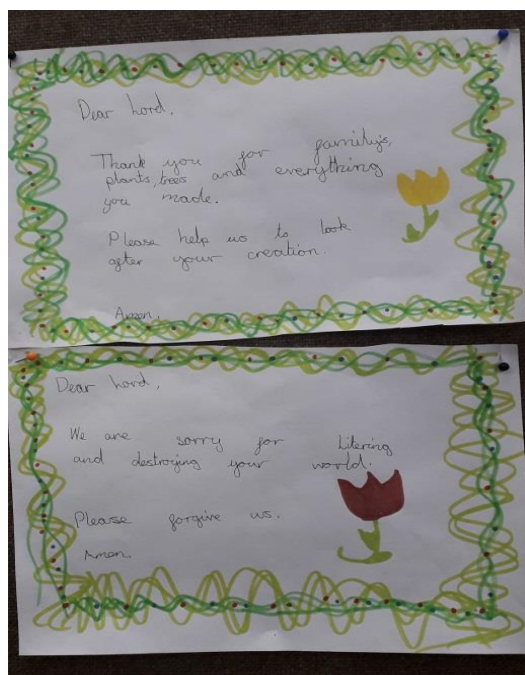 Dear Lord,
Thank you for family's,
plants, trees and everything
you made.
Please help us to look
after your creation.
Amen.
Dear Lord,
We are sorry for Litering
and destroying your world.
Please forgive us.
Amen.